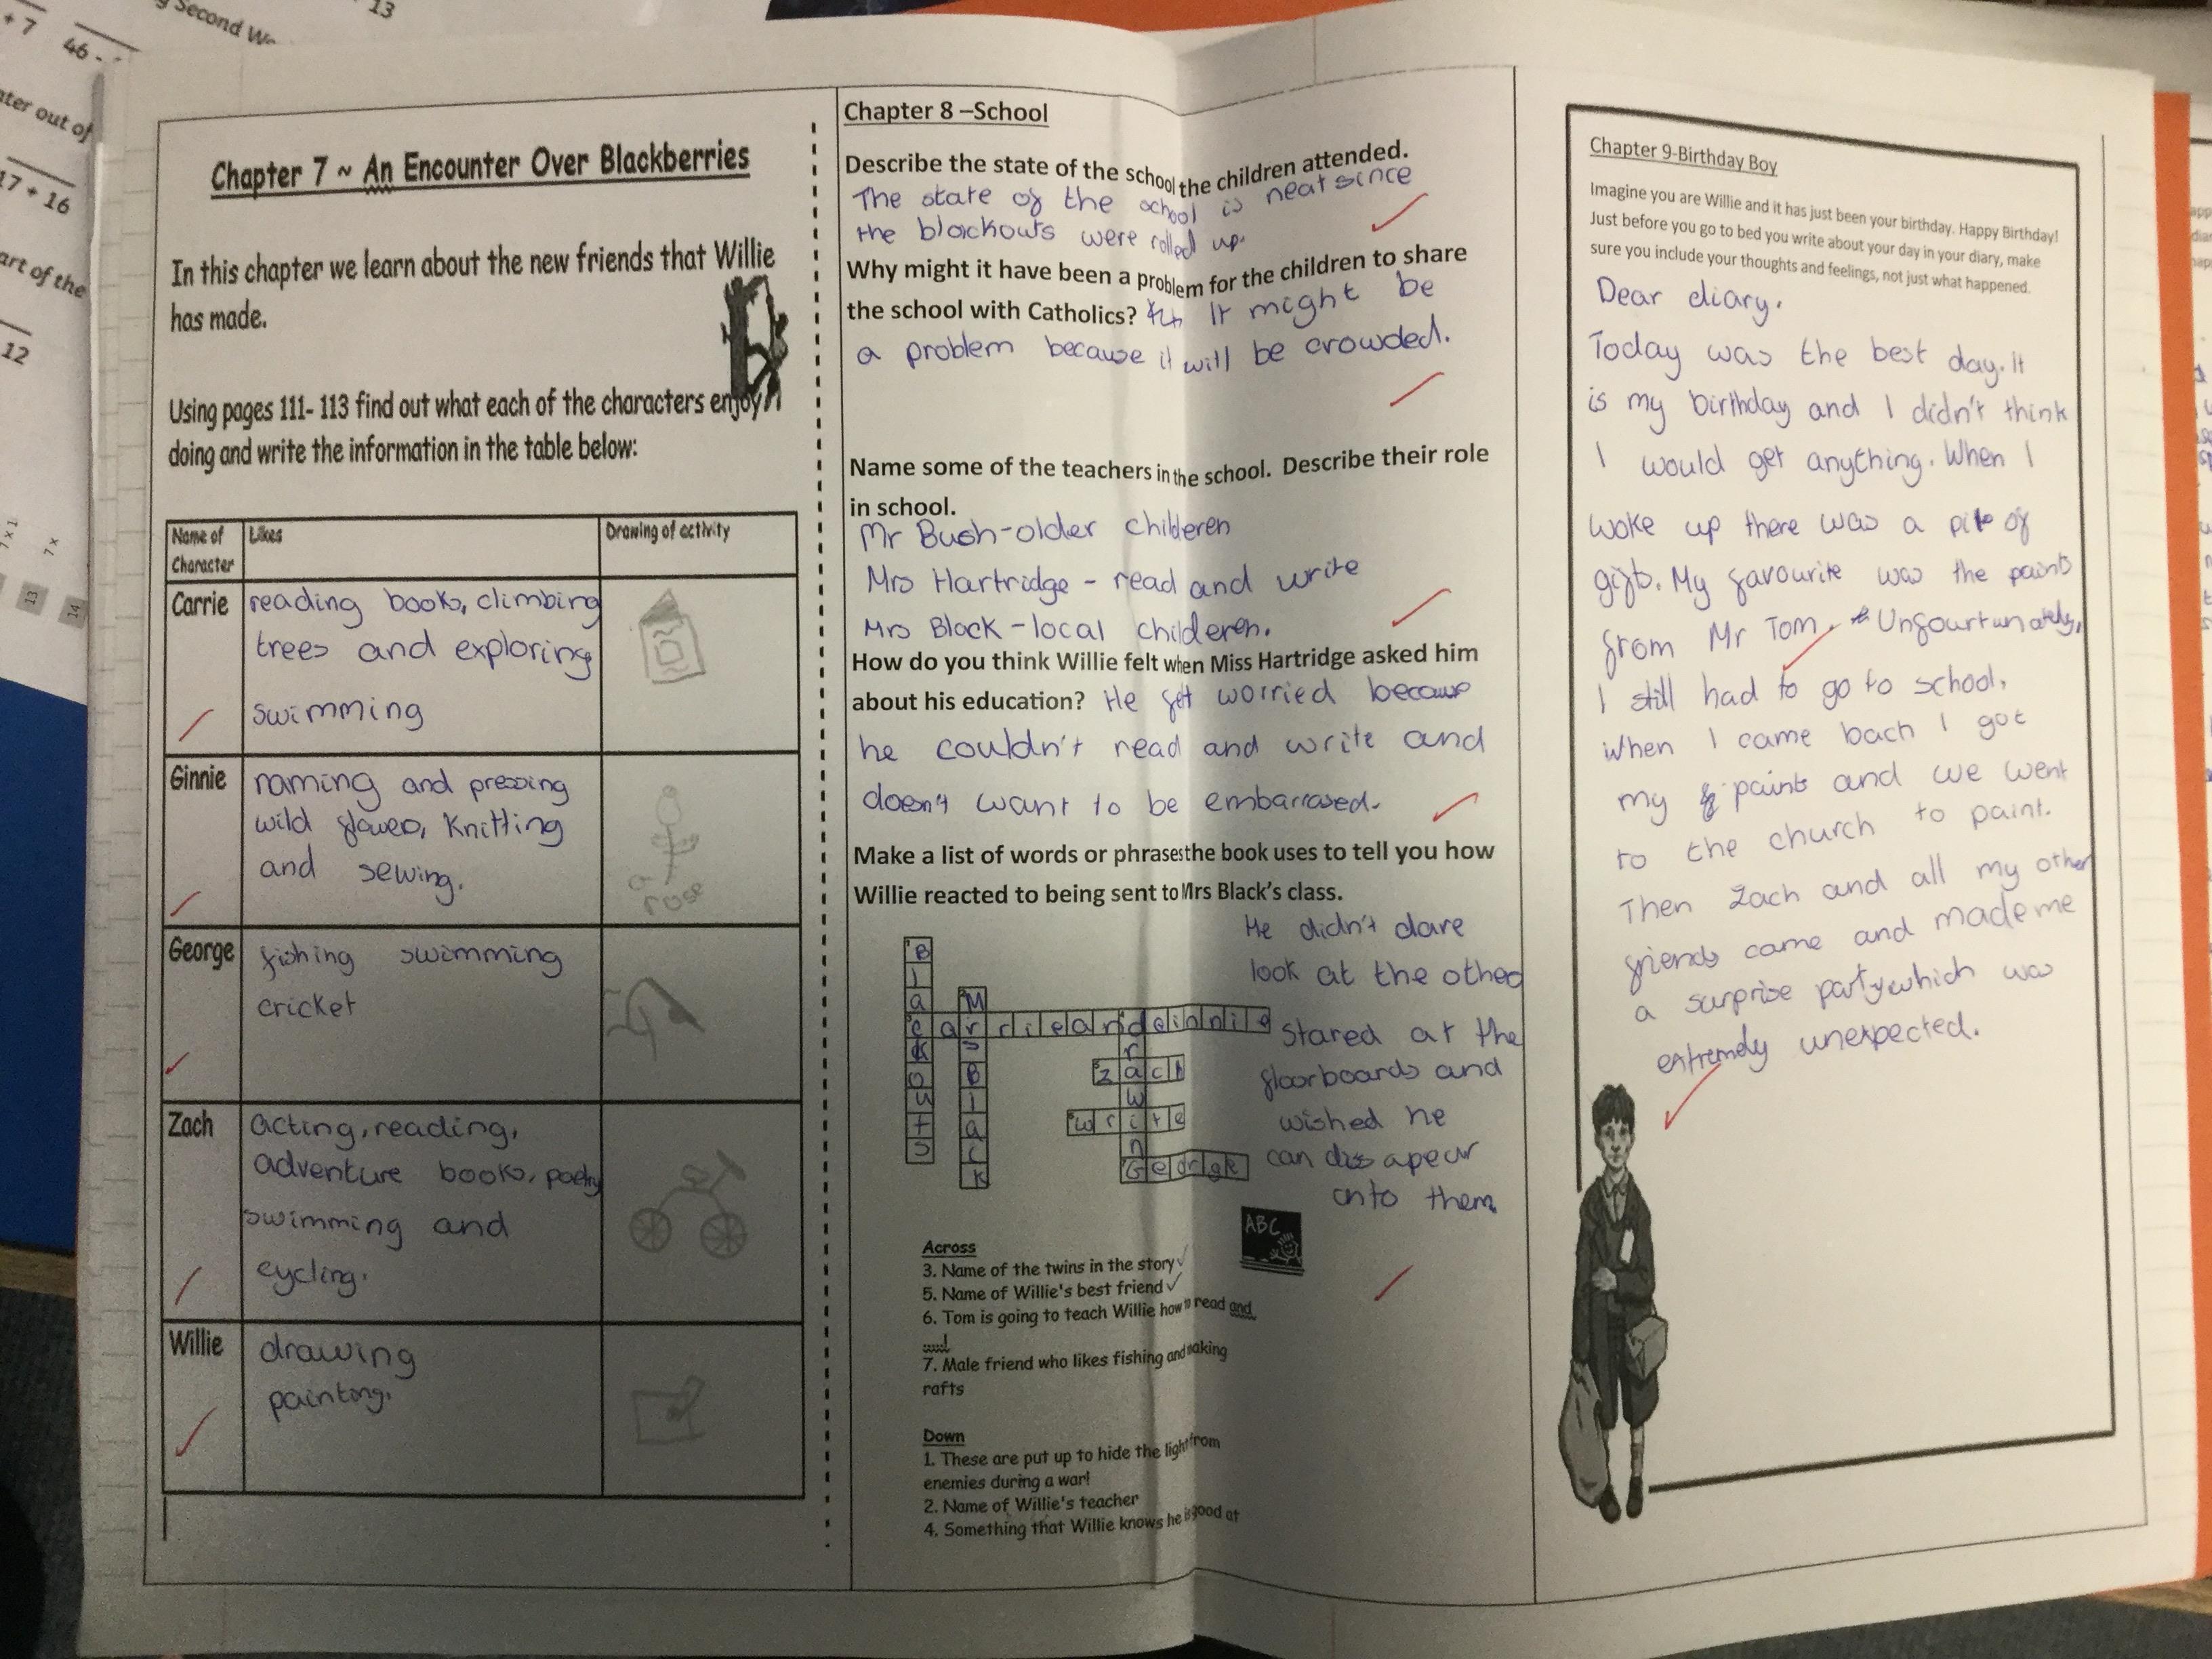 + 7
46 -
Second W
13
ter out of
17 + 16
art of the
12
7 x 1
7 x
13
14
Chapter 7 ~ An Encounter Over Blackberries
In this chapter we learn about the new friends that Willie
has made.
Using pages 111- 113 find out what each of the characters enjoy
doing and write the information in the table below:
Name of
Character
Likes
Drawing of activity
Carrie
reading books, climbing
trees and exploring
swimming
Ginnie
naming and pressing
wild flowers, knitting
and sewing.
a
rose
George
fishing swimming
cricket
Zach
acting, reading,
adventure books, poetry
swimming and
cycling.
Willie
drawing
painting.
Chapter 8 –School
Describe the state of the school the children attended.
The state of the school is neat since
the blackouts were rolled up.
Why might it have been a problem for the children to share
the school with Catholics? It might be
a problem because it will be crowded.
Name some of the teachers in the school. Describe their role
in school.
Mr Bush-older childeren
Mrs Hartridge - read and write
Mrs Black - local childeren.
How do you think Willie felt when Miss Hartridge asked him
about his education? He felt worried because
he couldn't read and write and
doesn't want to be embarrased.
Make a list of words or phrases the book uses to tell you how
Willie reacted to being sent to Mrs Black's class.
He didn't dare
look at the other
stared at the
floorboards and
wished he
can disapear
onto them
Blackouts
Mrs Black
carrieandginnie
drawing
zach
write
George
ABC
Across
3. Name of the twins in the story
5. Name of Willie's best friend
6. Tom is going to teach Willie how to read and
....!
7. Male friend who likes fishing and making
rafts
Down
1. These are put up to hide the light from
enemies during a war!
2. Name of Willie's teacher
4. Something that Willie knows he is good at
Chapter 9-Birthday Boy
Imagine you are Willie and it has just been your birthday. Happy Birthday!
Just before you go to bed you write about your day in your diary, make
sure you include your thoughts and feelings, not just what happened.
Dear diary.
Today was the best day. It
is my birthday and I didn't think
I would get anything. When I
woke up there was a pile of
gifts. My favourite was the paints
from Mr Tom. Unfourtunately,
I still had to go to school.
When I came bach I got
my paints and we went
to the church to paint.
Then Zach and all my other
friends came and made me
a surprise party which was
extremely unexpected.